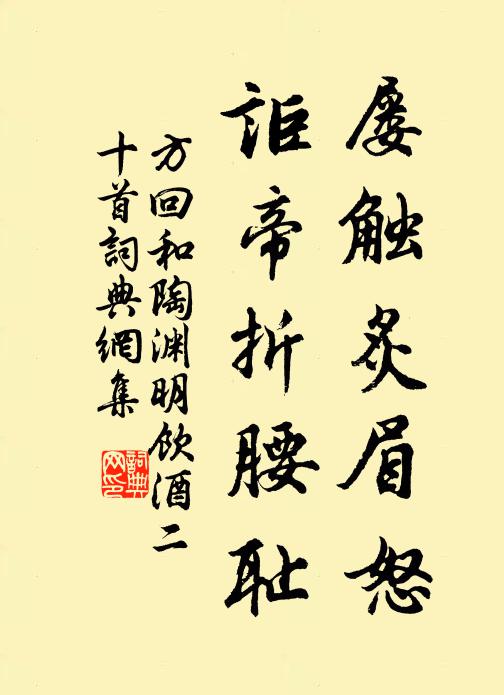 屡触炙眉怒
讵帝折腰耻
方回和陶渊明饮酒二
十首詞典網集
詞典网印